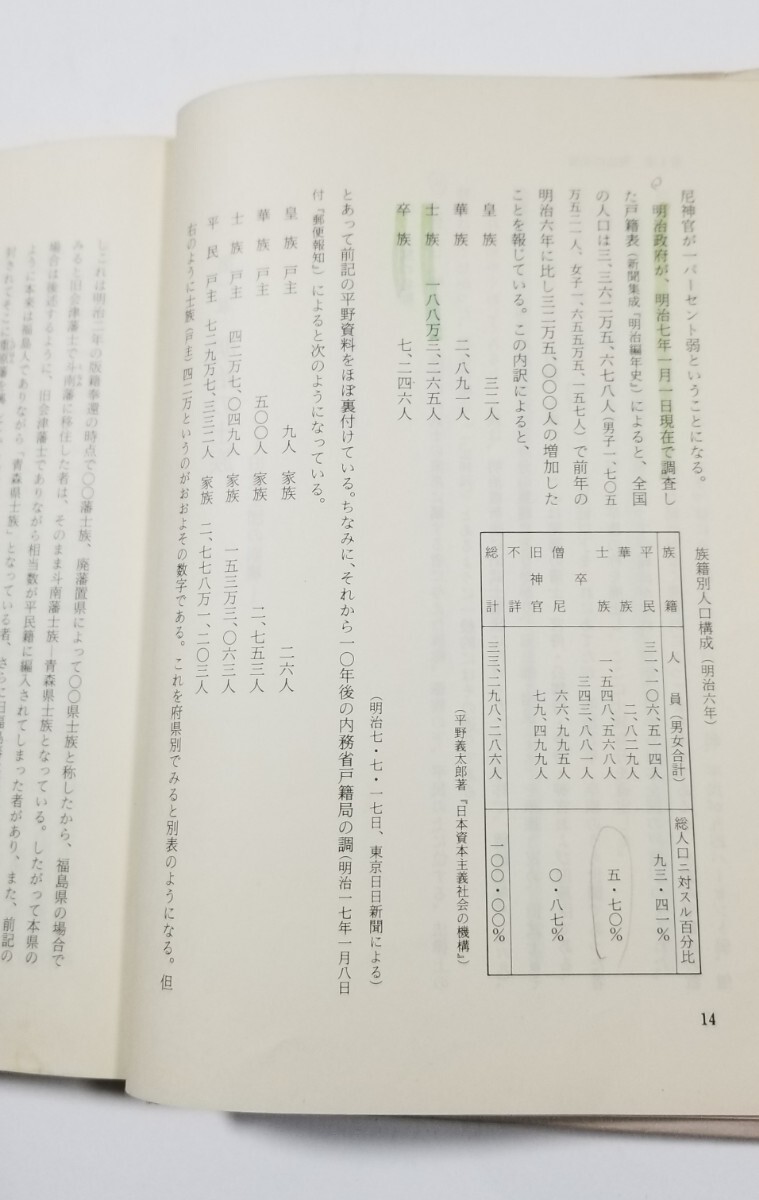 尼神官が一パーセント弱ということになる。
明治政府が、明治七年一月一日現在で調査し
た戸籍表（新聞集成『明治編年史』）によると、全国
の人口は三、三六二万五、六七八人（男子一、七〇五
万五二一人、女子一、六五五万五、一五七人）で前年の
明治六年に比し三二万五、〇〇〇人の増加した
ことを報じている。この内訳によると、
皇族 三二人
華族 二、八九一人
士族 一八八万三、二六五人
卒族 七、二四六人
族籍別人口構成（明治六年）
族籍 人員（男女合計） 総人口ニ対スル百分比
平民 三一、一〇六、五一四人 九三・四一%
華族 二、八二九人
士族 一、五四八、五六八人 五・七〇%
卒 三四三、八八一人
僧尼 六六、九九五人 〇・八七%
旧神官 七九、四九九人
不詳
総計 三三、二九八、二八六人 一〇〇・〇〇%
（平野義太郎著『日本資本主義社会の機構』）
（明治七・七・一七日、東京日日新聞による）
とあって前記の平野資料をほぼ裏付けている。ちなみに、それから一〇年後の内務省戸籍局の調（明治一七年一月八日
付『郵便報知』）によると次のようになっている。
皇族戸主 九人 家族 二六人
華族戸主 五〇〇人 家族 二、七五三人
士族戸主 四二万七、〇四九人 家族 一五三万三、〇六三人
平民戸主 七二九万七、三三二人 家族 二、七七八万一、二〇三人
右のように士族（戸主）四二万というのがおおよその数字である。これを府県別でみると別表のようになる。但
14
しこれは明治二年の版籍奉還の時点で〇〇藩士族、廃藩置県によって〇〇県士族と称したから、福島県の場合で
みると旧会津藩士で斗南藩に移住した者は、そのまま斗南藩士族―青森県士族となっている。したがって本県の
場合は後述するように、旧会津藩士でありながら相当数が平民籍に編入されてしまった者があり、また、前記の
ように本来は福島人でありながら「青森県士族」となっている者、さらに旧